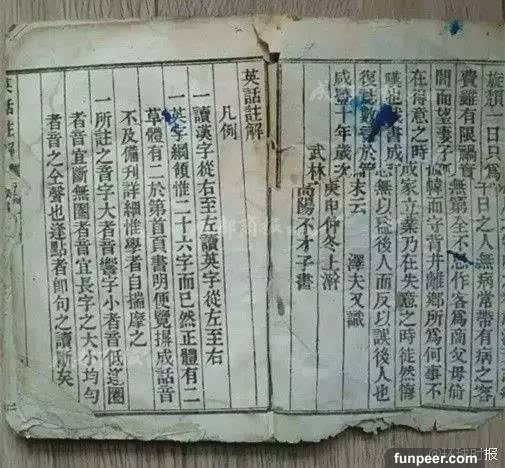 一日只為午日之人無病常帶有病之容
費雖有限禍實無窮全不思作客為商父母倚
閭而望妻子倚幃而守背井離鄉所為何事不
在得意之時成家立業乃在失意之時徒然悔
嘆也茲書成無以益後人而反以誤後人也
復數言於篇末云 澤夫又識
咸豐十年歲次庚申仲冬上澣
武林高陽不才子書
英話註解
凡例
一讀漢字從右至左讀英字從左至右
一英字綱領惟二十六字而已然正體有二
草體有二於第首頁書明便覽摒成話音
不及備刊詳細惟學者自揣摩之
一所註之音字大者音響字小者音低逢圈
者音宜斷無圈者音宜長字之大小均勻
者音之仝聲也逢點者即句之讀斷矣
英話註解
funpeer.com